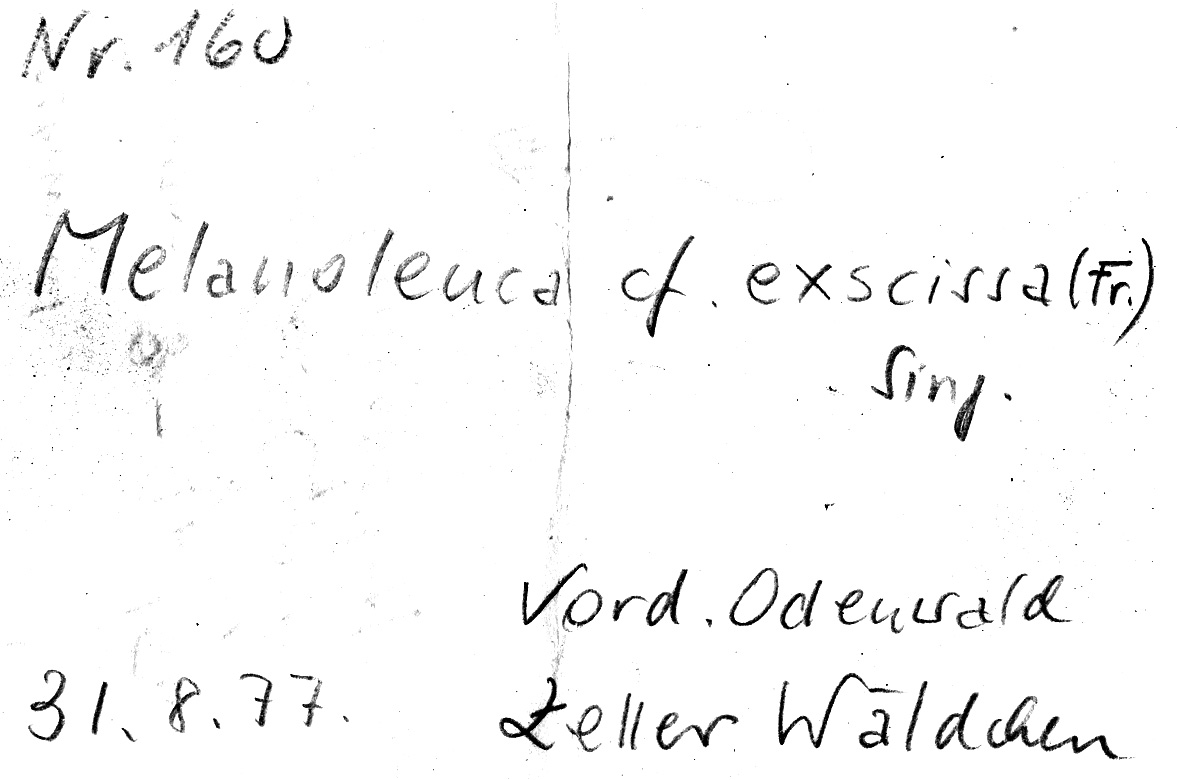 Nr. 160
Melanoleuca cf. exscissa (Fr.)
Sing.
Vord. Odenwald
31.8.77. Zeller Wäldchen